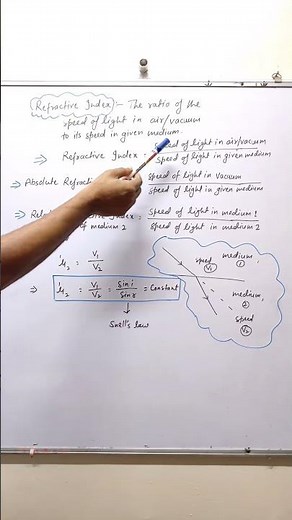 Refractive Index :- The ratio of the
speed of light in air/vacuum
to its speed in given medium.
⇒ Refractive Index = Speed of light in air/vacuum
Speed of light in given medium
⇒ Absolute Refractive
Speed of light in vacuum
Speed of light in given medium
⇒
Index = Speed of light in medium 1
of medium 2
Speed of light in medium 2
¹μ₂ = V₁/V₂
⇒ ¹μ₂ = V₁/V₂ = Sin i/Sin r = Constant
Snell's law
medium 1
speed V₁
medium 2
speed V₂